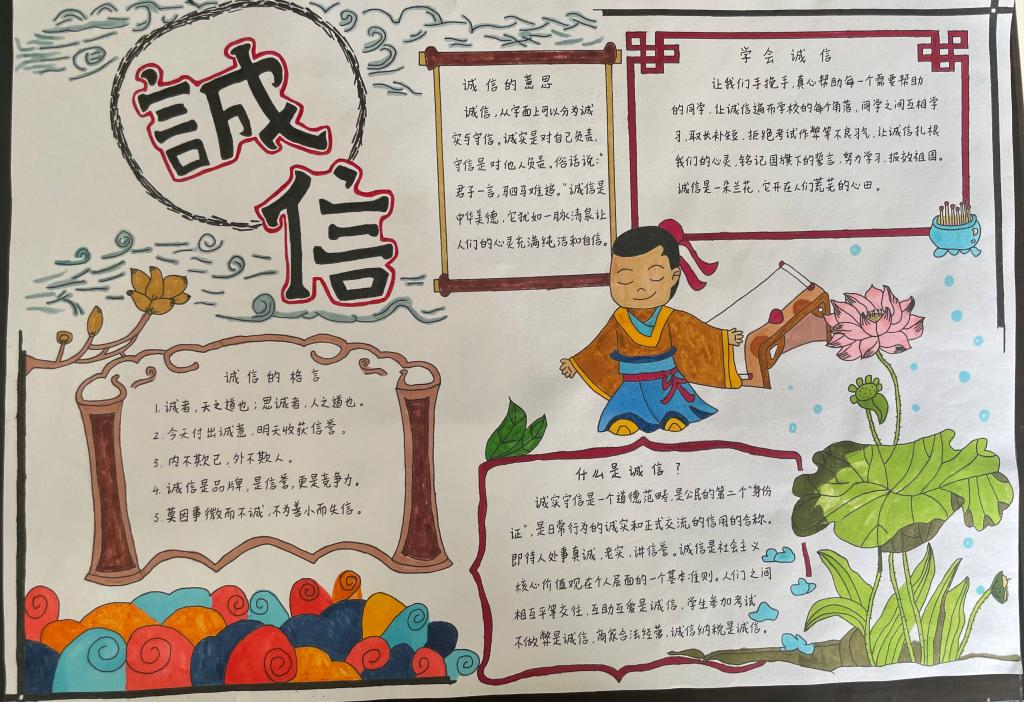 誠
信
诚信的意思
诚信，从字面上可以分为诚
实与守信。诚实是对自己负责，
守信是对他人负责。俗话说："
君子一言，驷马难追。"诚信是
中华美德，它犹如一脉清泉让
人们的心灵充满纯洁和自信。
学会诚信
让我们手挽手，真心帮助每一个需要帮助
的同学，让诚信遍布学校的每个角落，同学之间互相学
习，取长补短，拒绝考试作弊等不良习气，让诚信扎根
我们的心灵，铭记国旗下的誓言，努力学习，报效祖国。
诚信是一朵兰花，它开在人们荒芜的心田。
诚信的格言
1. 诚者，天之道也；思诚者，人之道也。
2. 今天付出诚意，明天收获信誉。
3. 内不欺己，外不欺人。
4. 诚信是品牌，是信誉，更是竞争力。
5. 莫因事微而不诚，不为善小而失信。
什么是诚信？
诚实守信是一个道德范畴，是公民的第二个"身份
证"，是日常行为的诚实和正式交流的信用的合称。
即待人处事真诚、老实、讲信誉。诚信是社会主义
核心价值观在个人层面的一个基本准则。人们之间
相互平等交往，互助互爱是诚信，学生参加考试
不做弊是诚信，商家合法经营，诚信纳税是诚信。